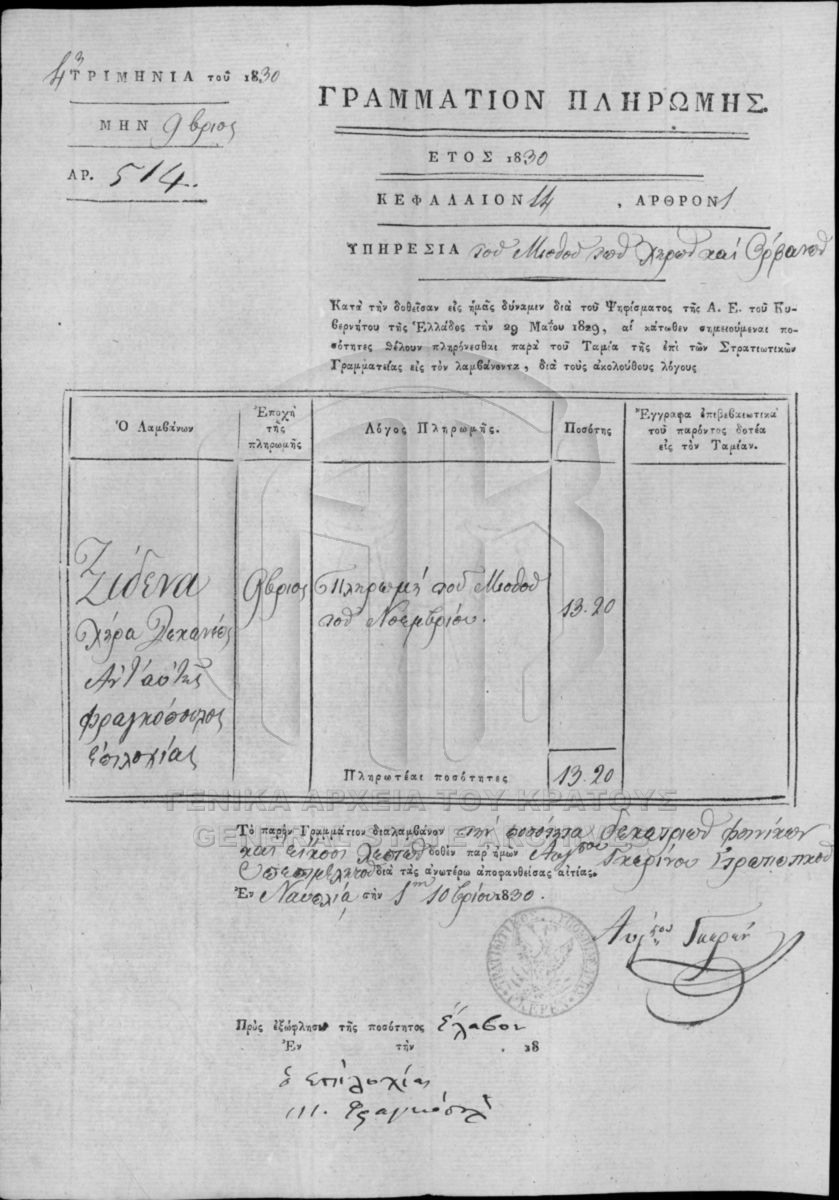 4 3 ΤΡΙΜΗΝΙΑ τοῦ 1830
ΜΗΝ 9βριος
ΑΡ. 514.
ΓΡΑΜΜΑΤΙΟΝ ΠΛΗΡΩΜΗΣ.
ΕΤΟΣ 1830
ΚΕΦΑΛΑΙΟΝ 14 , ΑΡΘΡΟΝ 1
ΥΠΗΡΕΣΙΑ τοῦ Μισθοῦ τῶν χηρῶν καὶ Ὀρφανῶν
Κατὰ τὴν δοθεῖσαν εἰς ἡμᾶς δύναμιν διὰ τοῦ Ψηφίσματος τῆς Α. Ε. τοῦ Κυ-
βερνήτου τῆς Ἑλλάδος τὴν 29 Μαΐου 1829, αἱ κάτωθεν σημειούμεναι πο-
σότητες θέλουν πληρόνεσθαι παρὰ τοῦ Ταμία τῆς ἐπὶ τῶν Στρατιωτικῶν
Γραμματείας εἰς τὸν λαμβάνοντα, διὰ τοὺς ἀκολούθους λόγους
Ὁ Λαμβάνων
Ἐποχὴ τῆς πληρωμῆς
Λόγος Πληρωμῆς.
Ποσότης
Ἔγγραφα ἐπιβεβαιωτικὰ
τοῦ παρόντος δοτέα
εἰς τὸν Ταμίαν.
χήρα Δεκανέως
Ἀντ' αὐτῆς
Φραγκόπουλος
ἐπιλοχίας
9βριος
Πληρωμὴ τοῦ Μισθοῦ
τοῦ Νοεμβρίου.
13.20
Πληρωτέαι ποσότητες
13.20
ΓΕΝΙΚΑ ΑΡΧΕΙΑ ΤΟΥ ΚΡΑΤΟΥΣ
GENERAL STATE ARCHIVES
Τὸ παρὸν Γραμμάτιον διαλαμβάνον τὴν ποσότητα δεκατριῶν φοινίκων
καὶ εἴκοσι λεπτῶν δοθὲν παρ' ἡμῶν Αὐγούστου Γκερίνου Στρατιωτικοῦ
διὰ τὰς ἀνωτέρω ἀποφανθείσας αἰτίας.
Ἐν Ναυπλίᾳ τὴν 1 10βρίου 1830.
ΓΚΕΡΕΝ
Πρὸς ἐξώφλησιν τῆς ποσότητος ἔλαβον
Ἐν τὴν 18
ὁ ἐπιλοχίας